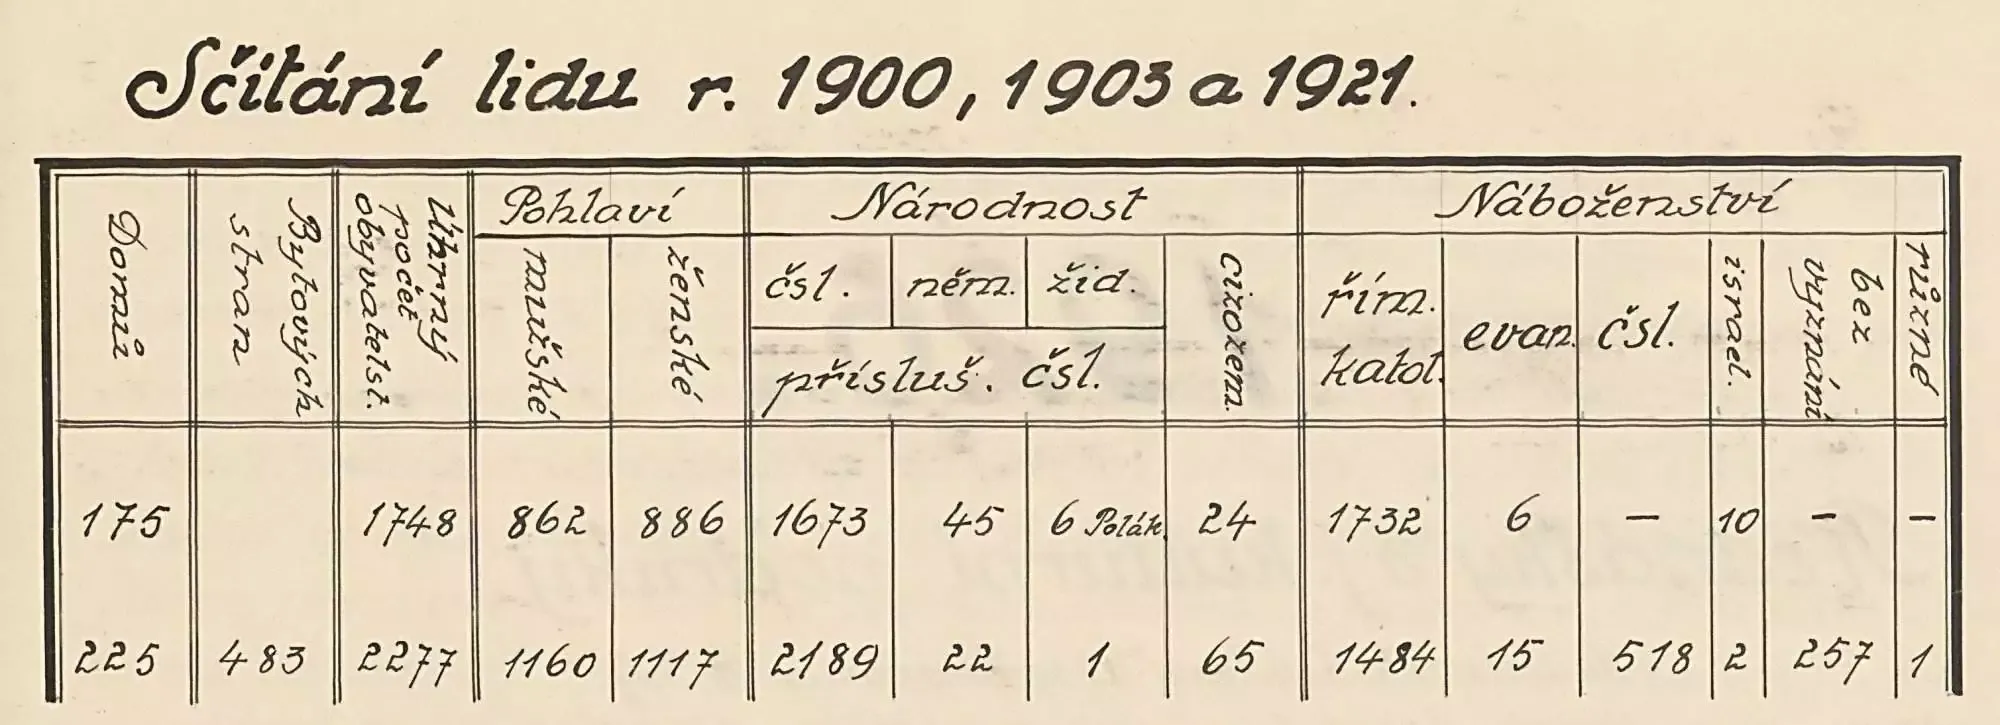 Sčítání lidu r. 1900, 1903 a 1921.
Domů
Bytových stran
Úhrnný počet obyvatelst.
Pohlaví
mužské
ženské
Národnost
čsl.
něm.
žid.
přísluš. čsl.
cizozem.
Náboženství
řím. katol.
evan.
čsl.
israel.
bez vyznání
různé
175 1748 862 886 1673 45 6 Polák. 24 1732 6 – 10 – –
225 483 2277 1160 1117 2189 22 1 65 1484 15 518 2 257 1